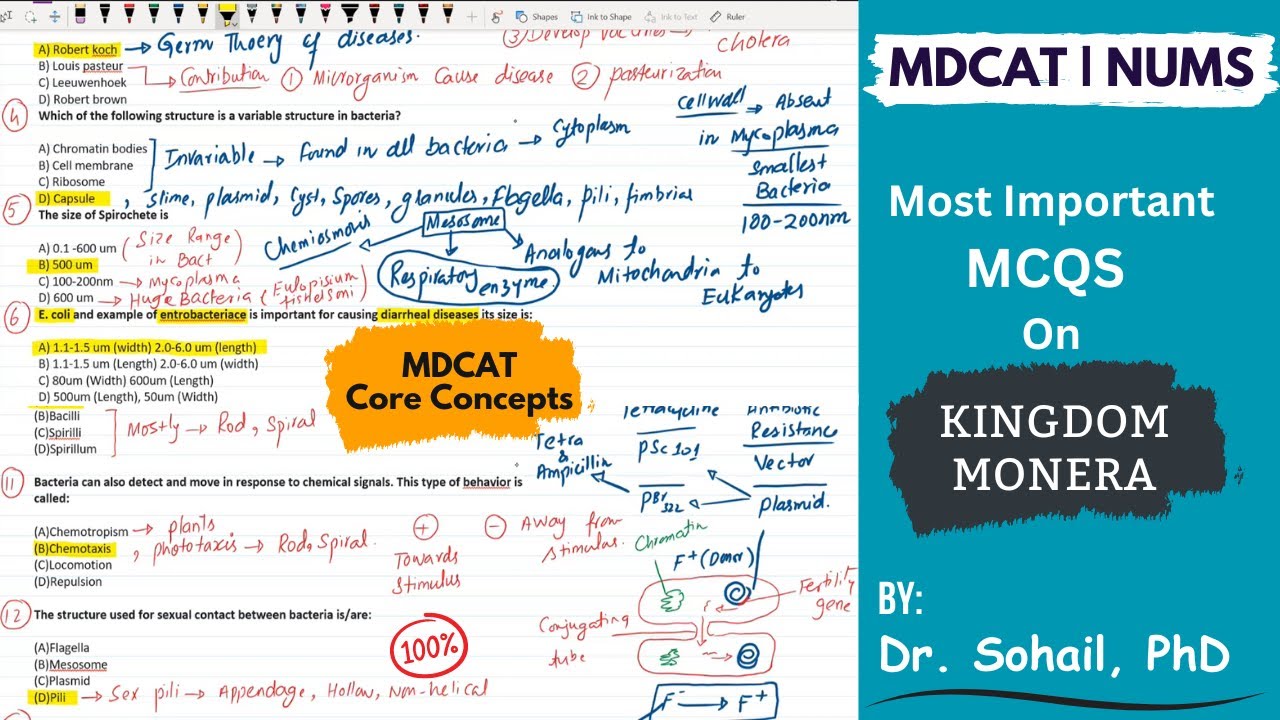 Shapes
Ink to Shape
Ink to Text
Ruler
A) Robert koch → Germ Thoery of diseases.
③ Develop vaccines →
cholera
B) Louis pasteur
Contribution ① Microrganism Cause disease ② pasteurization
C) Leeuwenhoek
D) Robert brown
4 Which of the following structure is a variable structure in bacteria?
A) Chromatin bodies
B) Cell membrane
C) Ribosome
Invariable → found in all bacteria → Cytoplasm
D) Capsule , slime, plasmid, Cyst, Spores, granules, flagella, pili, fimbriae
Cell wall → Absent
in Mycoplasma
Smallest
Bacteria
100-200nm
5 The size of Spirochete is
A) 0.1 -600 um (Size Range in Bact)
B) 500 um
C) 100-200nm → Mycoplasma
D) 600 um → Huge Bacteria (Eulopisium fishelsoni)
Chemiosmosis
Mesosome
Respiratory enzyme.
Analogous to
Mitochondria to
Eukaryotes
6 E. coli and example of entrobacteriace is important for causing diarrheal diseases its size is:
A) 1.1-1.5 um (width) 2.0-6.0 um (length)
B) 1.1-1.5 um (Length) 2.0-6.0 um (width)
C) 80um (Width) 600um (Length)
D) 500um (Length), 50um (Width)
(B)Bacilli
(C)Spirilli
(D)Spirillum
Mostly → Rod, Spiral
MDCAT
Core Concepts
Tetracycline
pSc101
Tetra
&
Ampicillin
pBr322
Antibiotic
Resistance
Vector
plasmid.
11 Bacteria can also detect and move in response to chemical signals. This type of behavior is
called:
(A)Chemotropism → plants
(B)Chemotaxis , phototaxis → Rod, Spiral.
(C)Locomotion
(D)Repulsion
+
Towards
Stimulus
- Away from
stimulus.
Chromatin
F+ (Donor)
Fertility
gene
Conjugating
tube
F- → F+
12 The structure used for sexual contact between bacteria is/are:
(A)Flagella
(B)Mesosome
(C)Plasmid
(D)Pili → Sex pili → Appendage, Hollow, Non-helical
100%
MDCAT | NUMS
Most Important
MCQS
On
KINGDOM
MONERA
BY:
Dr. Sohail, PhD